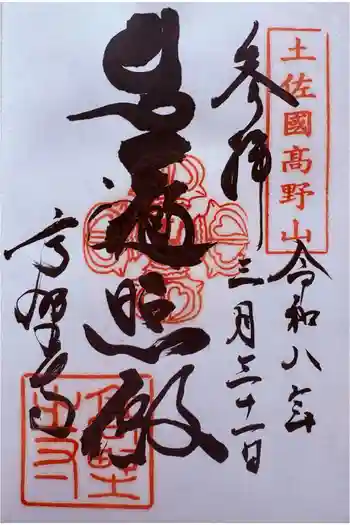 土佐國髙野山
参拝
令和八年
三月三十一日
遍照殿
高野寺